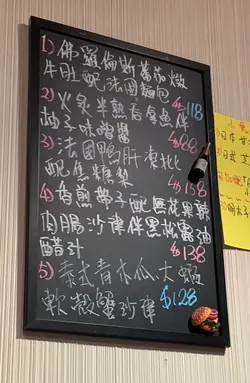 1) 佛羅倫斯蕃茄燉
牛肚配法國麵包
$118
2) 火炙半熟吞拿魚伴
柚子味噌醬
$88
3) 法國鴨肝麥批
配焦糖梨
$138
4) 香煎帶子配無花果辣
肉腸沙律伴黑松露油
醋汁
$138
5) 泰式青木瓜大蝦
軟殼蟹沙律
$128